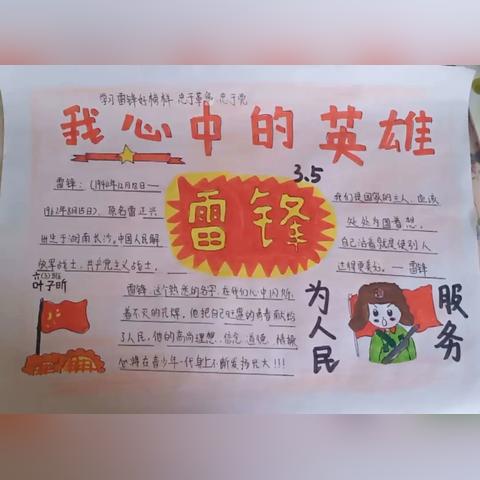 学习雷锋好榜样 忠于革命 忠于党
我心中的英雄
3.5
雷锋
雷锋:(1940年12月18日—
1962年8月15日),原名雷正兴
出生于湖南长沙。中国人民解
放军战士,共产党主义战士。
我们是国家的主人,应该
处处为国着想,
自己活着就是使别人
过得更美好。——雷锋
六(3)班
叶子昕
雷锋,这个熟悉的名字,在我们心中闪所
着不灭的光辉,他把自己旺盛的青春献给
了人民,他的高尚理想、信念、道德、情操
必将在青少年一代身上不断发扬光大!!!
为人民
服务